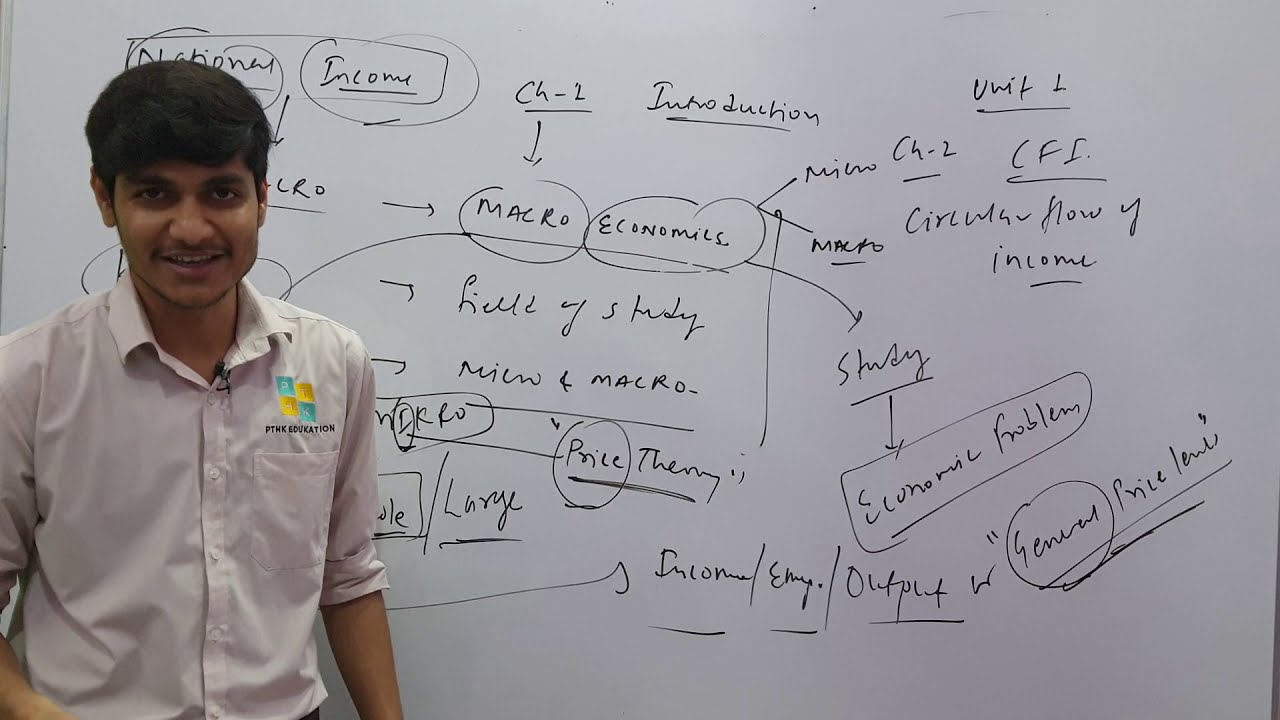 National Income
Ch-1 Introduction
Unit 1
CRO → MACRO ECONOMICS
Micro
MACRO
Ch-2 CFI.
Circular flow of
income
→ field of study
→ Micro & MACRO
Study
Economic Problem
IKRO
"Price Theory"
ole / Large
Income / Emp. / Output
"General Price level"
P T
H K
PTHK EDUKATION